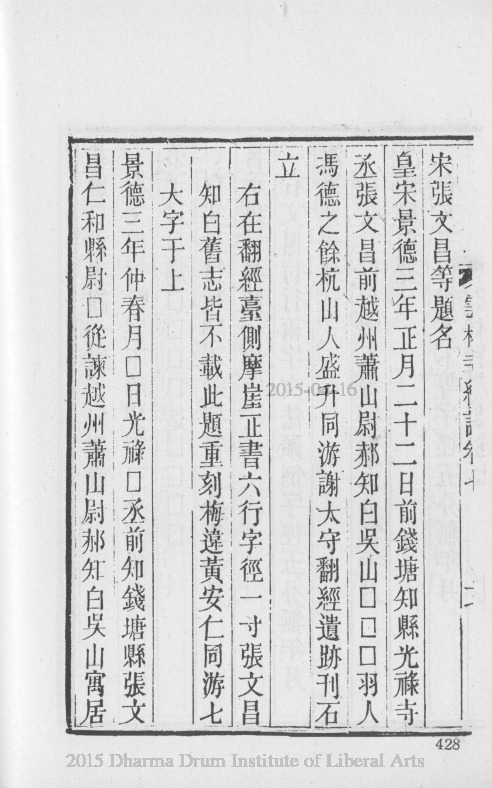 宋張文昌等題名
皇宋景德三年正月二十二日前錢塘知縣光祿寺
丞張文昌前越州蕭山尉郝知白吳山□□□羽人
馮德之餘杭山人盛升同游謝太守翻經遺跡刊石
立
右在翻經臺側摩崖正書六行字徑一寸張文昌
知白舊志皆不載此題重刻梅違黃安仁同游七
大字于上
景德三年仲春月□日光祿□丞前知錢塘縣張文
昌仁和縣尉□從諫越州蕭山尉郝知白吳山寓居
428
2015 Dharma Drum Institute of Liberal Arts